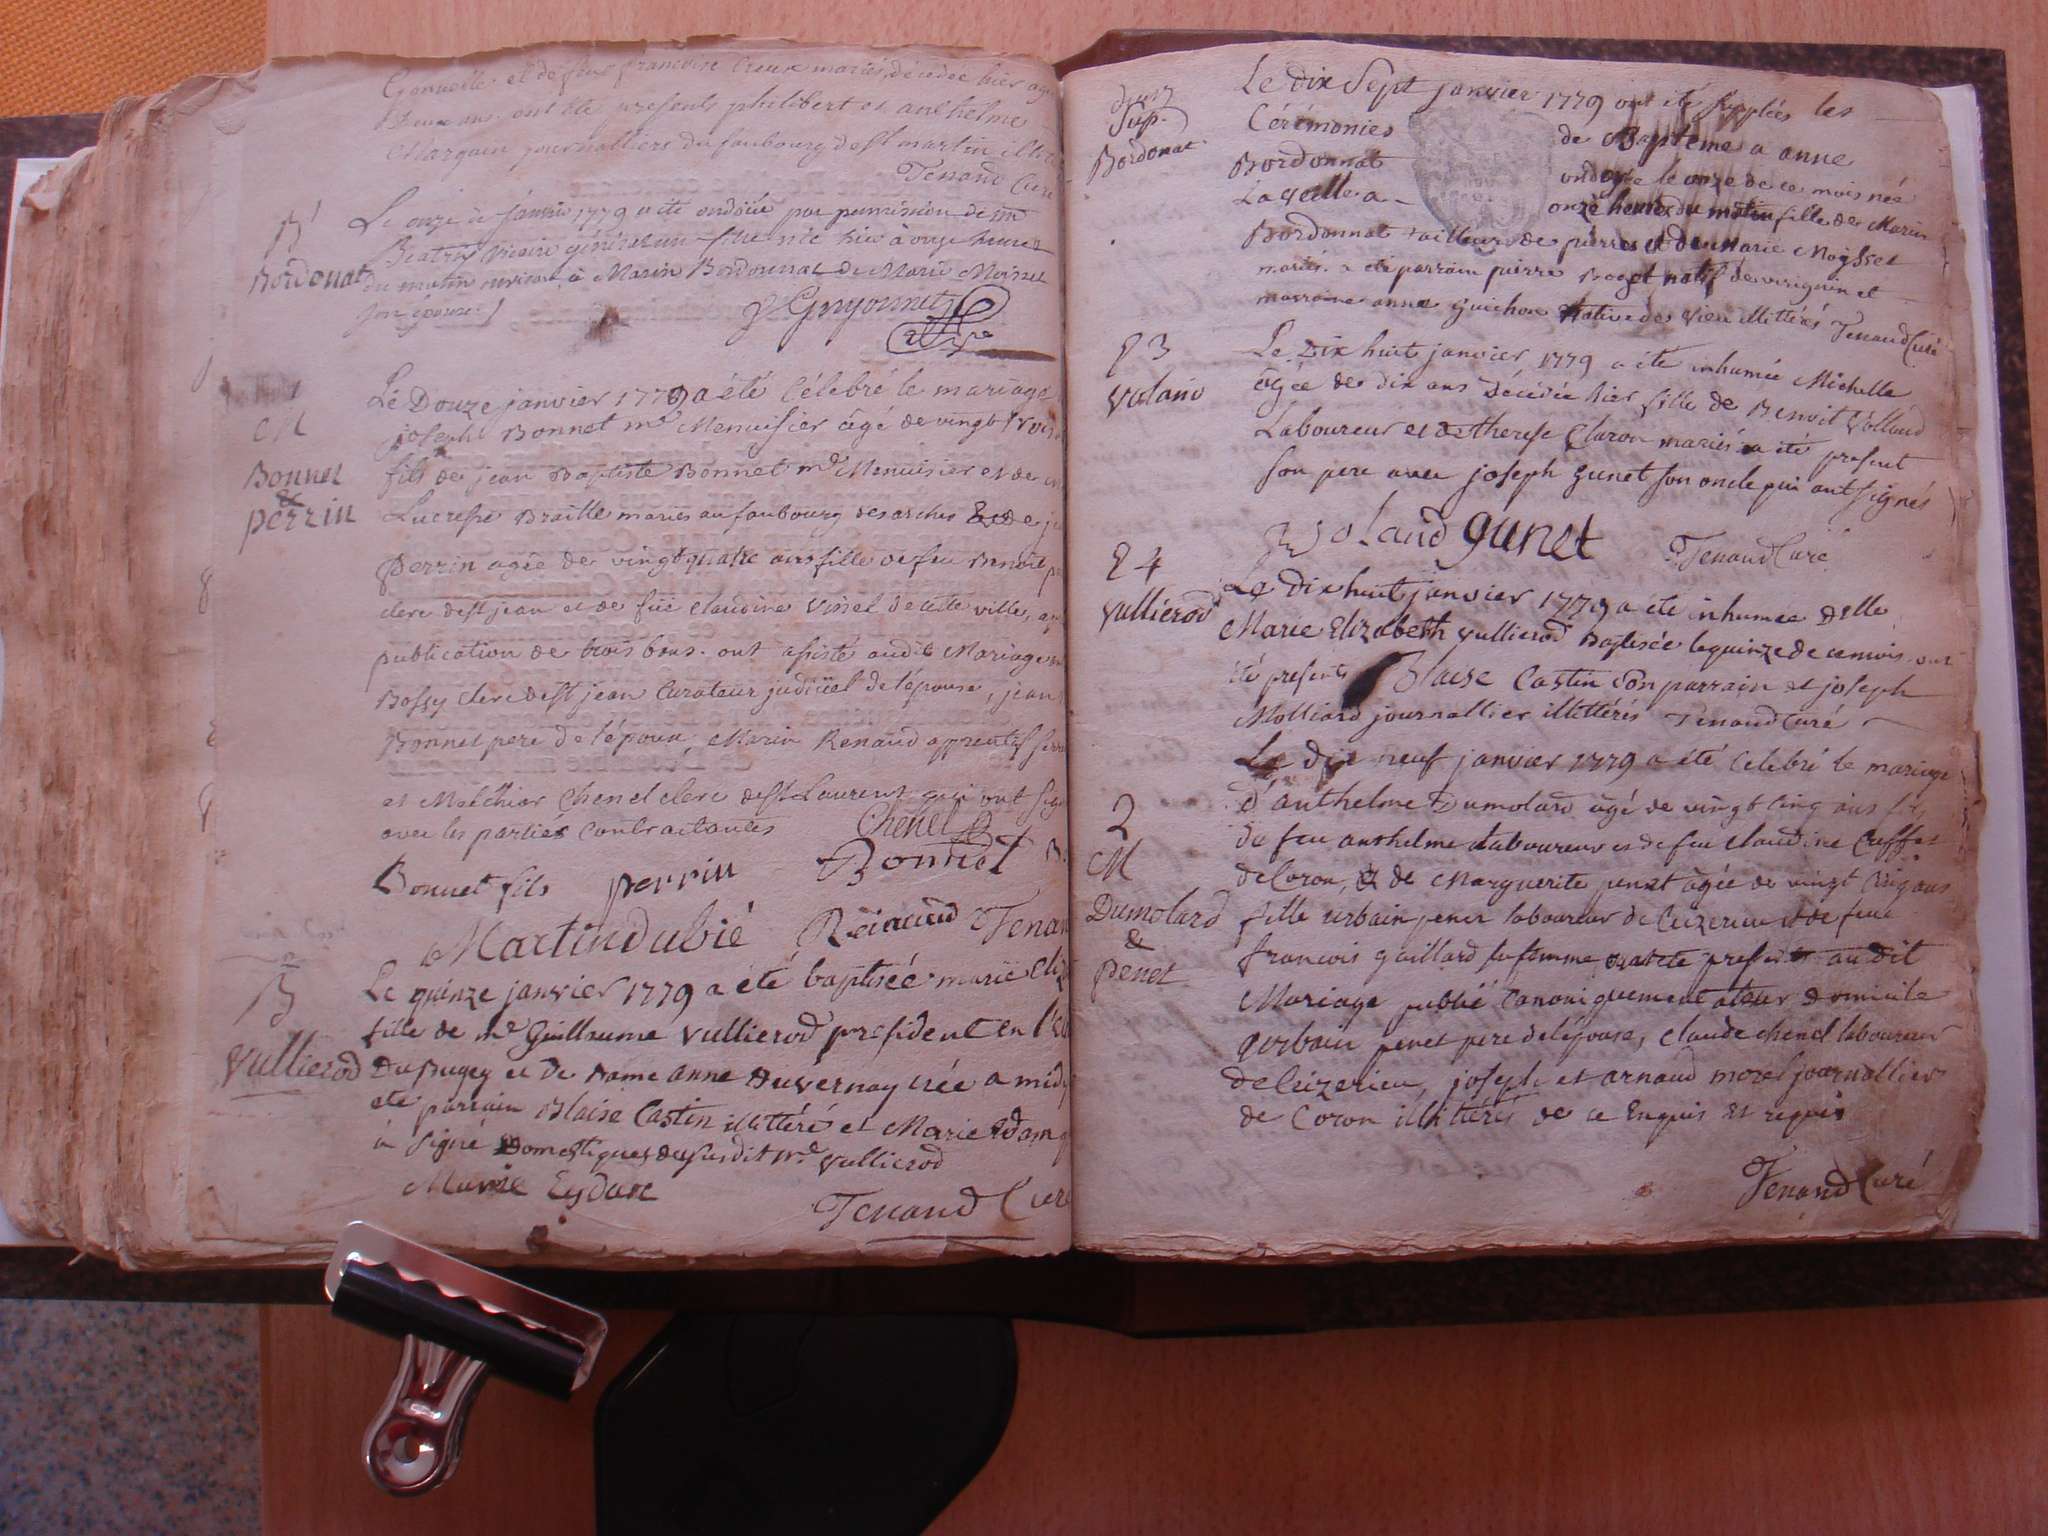 et de feue francoise Creux mariés, décédée hier
Deux ans. ont été presents philibert et anthelme
Marguin journalliers du faubourg de st martin
Tenand Curé
B
Bordonat
Le onze de janvier 1779 a été ondoïée par permission de mr
vicaire général un fille née hier à onze heures
du matin à Marin Bordonnat de Marie Moisset
son épouse
Guyonnet
M
Bonnet
&
perrin
Le Douze janvier 1779 a été Célébré le mariage
joseph Bonnet me Menuisier âgé de vingt trois
fils de jean Baptiste Bonnet me Menuisier et de
Lucresse Braille mariés au faubourg des arches & de
perrin agée de vingt quatre ans fille de feu Benoit
clerc de st jean et de füe claudine Vinet de cette ville,
publication de trois bans. ont assisté audit Mariage
Bossy clerc de st jean Curateur judiciel de l'épouse, jean
Bonnet pere de l'époux, Marin Renaud apprentif
et Melchior Chenel clerc de st Laurent qui ont signé
avec les parties Contractantes
Chenel
Bonnet fils perrin Bonnet
Martin dubié Reinaud Tenand
B
Vullierod
Le quinze janvier 1779 a été baptisée marie
fille de me Guillaume Vullierod president en
Du Bugey et De Dame anne Duvernay née a midy
été parrain Blaise Castin illittéré et Marie
à signé Domestiques du susdit Mr Vullierod
Marie Eydan
Tenand Curé
Sup.
Bordonat
Le dix Sept janvier 1779 ont été supplées les
Cérémonies de Baptême a anne
Bordonnat ondoyée le onze de ce mois née
La veille a onze heures du matin fille de Marin
Bordonnat tailleur de pierres et de Marie Moysset
mariés. a été parrain pierre Boget natif de virignin et
marraine anne guichon native de vieu illittérés Tenand Curé
23
Voland
Le Dix huit janvier 1779 a été inhumée Michelle
âgée de dix ans Décédée hier fille de Benoit Volland
Laboureur et de therese Claron mariés a été present
son pere avec joseph gunet son oncle qui ont signés
Voland gunet Tenand Curé
24
Vullierod
Le dix huit janvier 1779 a été inhumée Delle
Marie Elizabeth Vullierod Baptisée le quinze de ce mois. ont
été presents Blaise Castin son parrain et joseph
Molliard journallier illittérés Tenand Curé
2
M
Dumolard
&
penet
Le dix neuf janvier 1779 a été Célébré le mariage
d'anthelme Dumolard âgé de vingt Cinq ans fils
de feu anthelme Laboureur et de feu claudine Cuffet
de Coron, & de Marguerite penet âgée de vingt Cinq ans
fille urbain penet laboureur de Ceizerieu et de feue
francois gaillard sa femme present audit
Mariage publié Canoniquement a leur Domicile
urbain penet pere de l'épouse, Claude chenel laboureur
de Ceizerieu, joseph et arnaud morel journallier
de Coron illittérés de ce Enquis Et requis
Tenand Curé